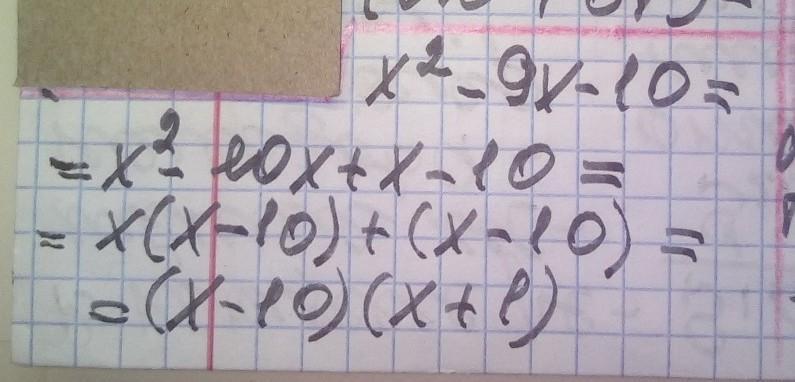 x² - 9x - 10 =
= x² - 10x + x - 10 =
= x(x - 10) + (x - 10) =
= (x - 10)(x + 1)